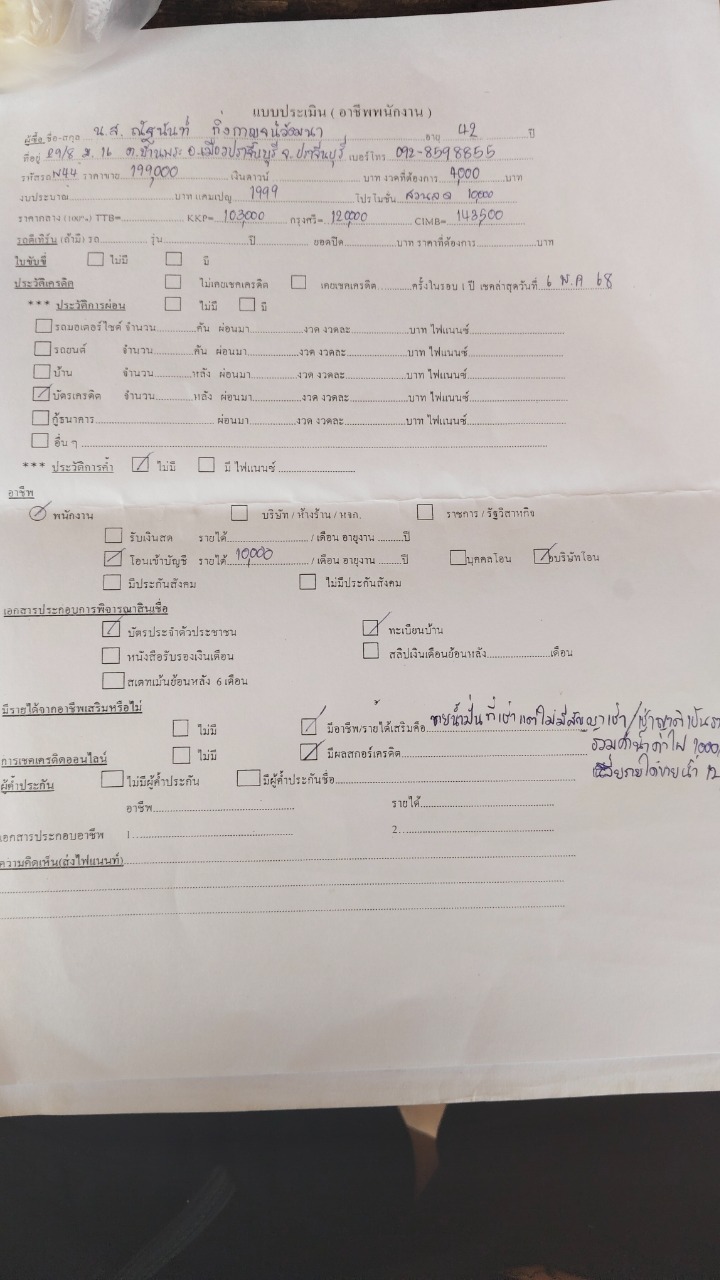 แบบประเมิน ( อาชีพพนักงาน )
ผู้ซื้อ ชื่อ-สกุล น.ส. ณัฐนันท์ กิ่งกาญจน์วัฒนา อายุ 42 ปี
ที่อยู่ 29/8 ม. 11 ต.บ้านพระ อ.เมืองปราจีนบุรี จ.ปราจีนบุรี เบอร์โทร 092-8598855
รหัสรถ N44 ราคาขาย 199,000 เงินดาวน์ บาท งวดที่ต้องการ 4,000 บาท
งบประมาณ บาท แคมเปญ 1999 โปรโมชั่น ส่วนลด 10,000
ราคากลาง (100%) TTB= KKP= 103,000 กรุงศรี= 120,000 CIMB= 143,500
รถตีเทิร์น (ถ้ามี) รถ รุ่น ปี ยอดปิด บาท ราคาที่ต้องการ บาท
ใบขับขี่ ไม่มี มี
ประวัติเครดิต ไม่เคยเชคเครดิต เคยเชคเครดิต ครั้งในรอบ 1 ปี เชคล่าสุดวันที่ 6 พ.ค 68
*** ประวัติการผ่อน ไม่มี มี
รถมอเตอร์ไซค์ จำนวน คัน ผ่อนมา งวด งวดละ บาท ไฟแนนซ์
รถยนต์ จำนวน คัน ผ่อนมา งวด งวดละ บาท ไฟแนนซ์
บ้าน จำนวน หลัง ผ่อนมา งวด งวดละ บาท ไฟแนนซ์
บัตรเครดิต จำนวน หลัง ผ่อนมา งวด งวดละ บาท ไฟแนนซ์
กู้ธนาคาร ผ่อนมา งวด งวดละ บาท ไฟแนนซ์
อื่น ๆ
*** ประวัติการค้ำ ไม่มี มี ไฟแนนซ์
อาชีพ
พนักงาน บริษัท / ห้างร้าน / หจก. ราชการ / รัฐวิสาหกิจ
รับเงินสด รายได้ / เดือน อายุงาน ปี
โอนเข้าบัญชี รายได้ 10,000 / เดือน อายุงาน ปี บุคคลโอน บริษัทโอน
มีประกันสังคม ไม่มีประกันสังคม
เอกสารประกอบการพิจารณาสินเชื่อ
บัตรประจำตัวประชาชน ทะเบียนบ้าน
หนังสือรับรองเงินเดือน สลิปเงินเดือนย้อนหลัง เดือน
สเตทเม้นย้อนหลัง 6 เดือน
มีรายได้จากอาชีพเสริมหรือไม่ ไม่มี มีอาชีพ/รายได้เสริมคือ ขายน้ำปั่น ที่เช่าแต่ไม่มีสัญญาเช่า
รวมค่าน้ำค่าไฟ 1000
การเชคเครดิตออนไลน์ ไม่มี มีผลสกอร์เครดิต
รายได้ขายน้ำ
ผู้ค้ำประกัน ไม่มีผู้ค้ำประกัน มีผู้ค้ำประกันชื่อ
อาชีพ รายได้
เอกสารประกอบอาชีพ 1 2
ความคิดเห็น(ส่งไฟแนนท์)